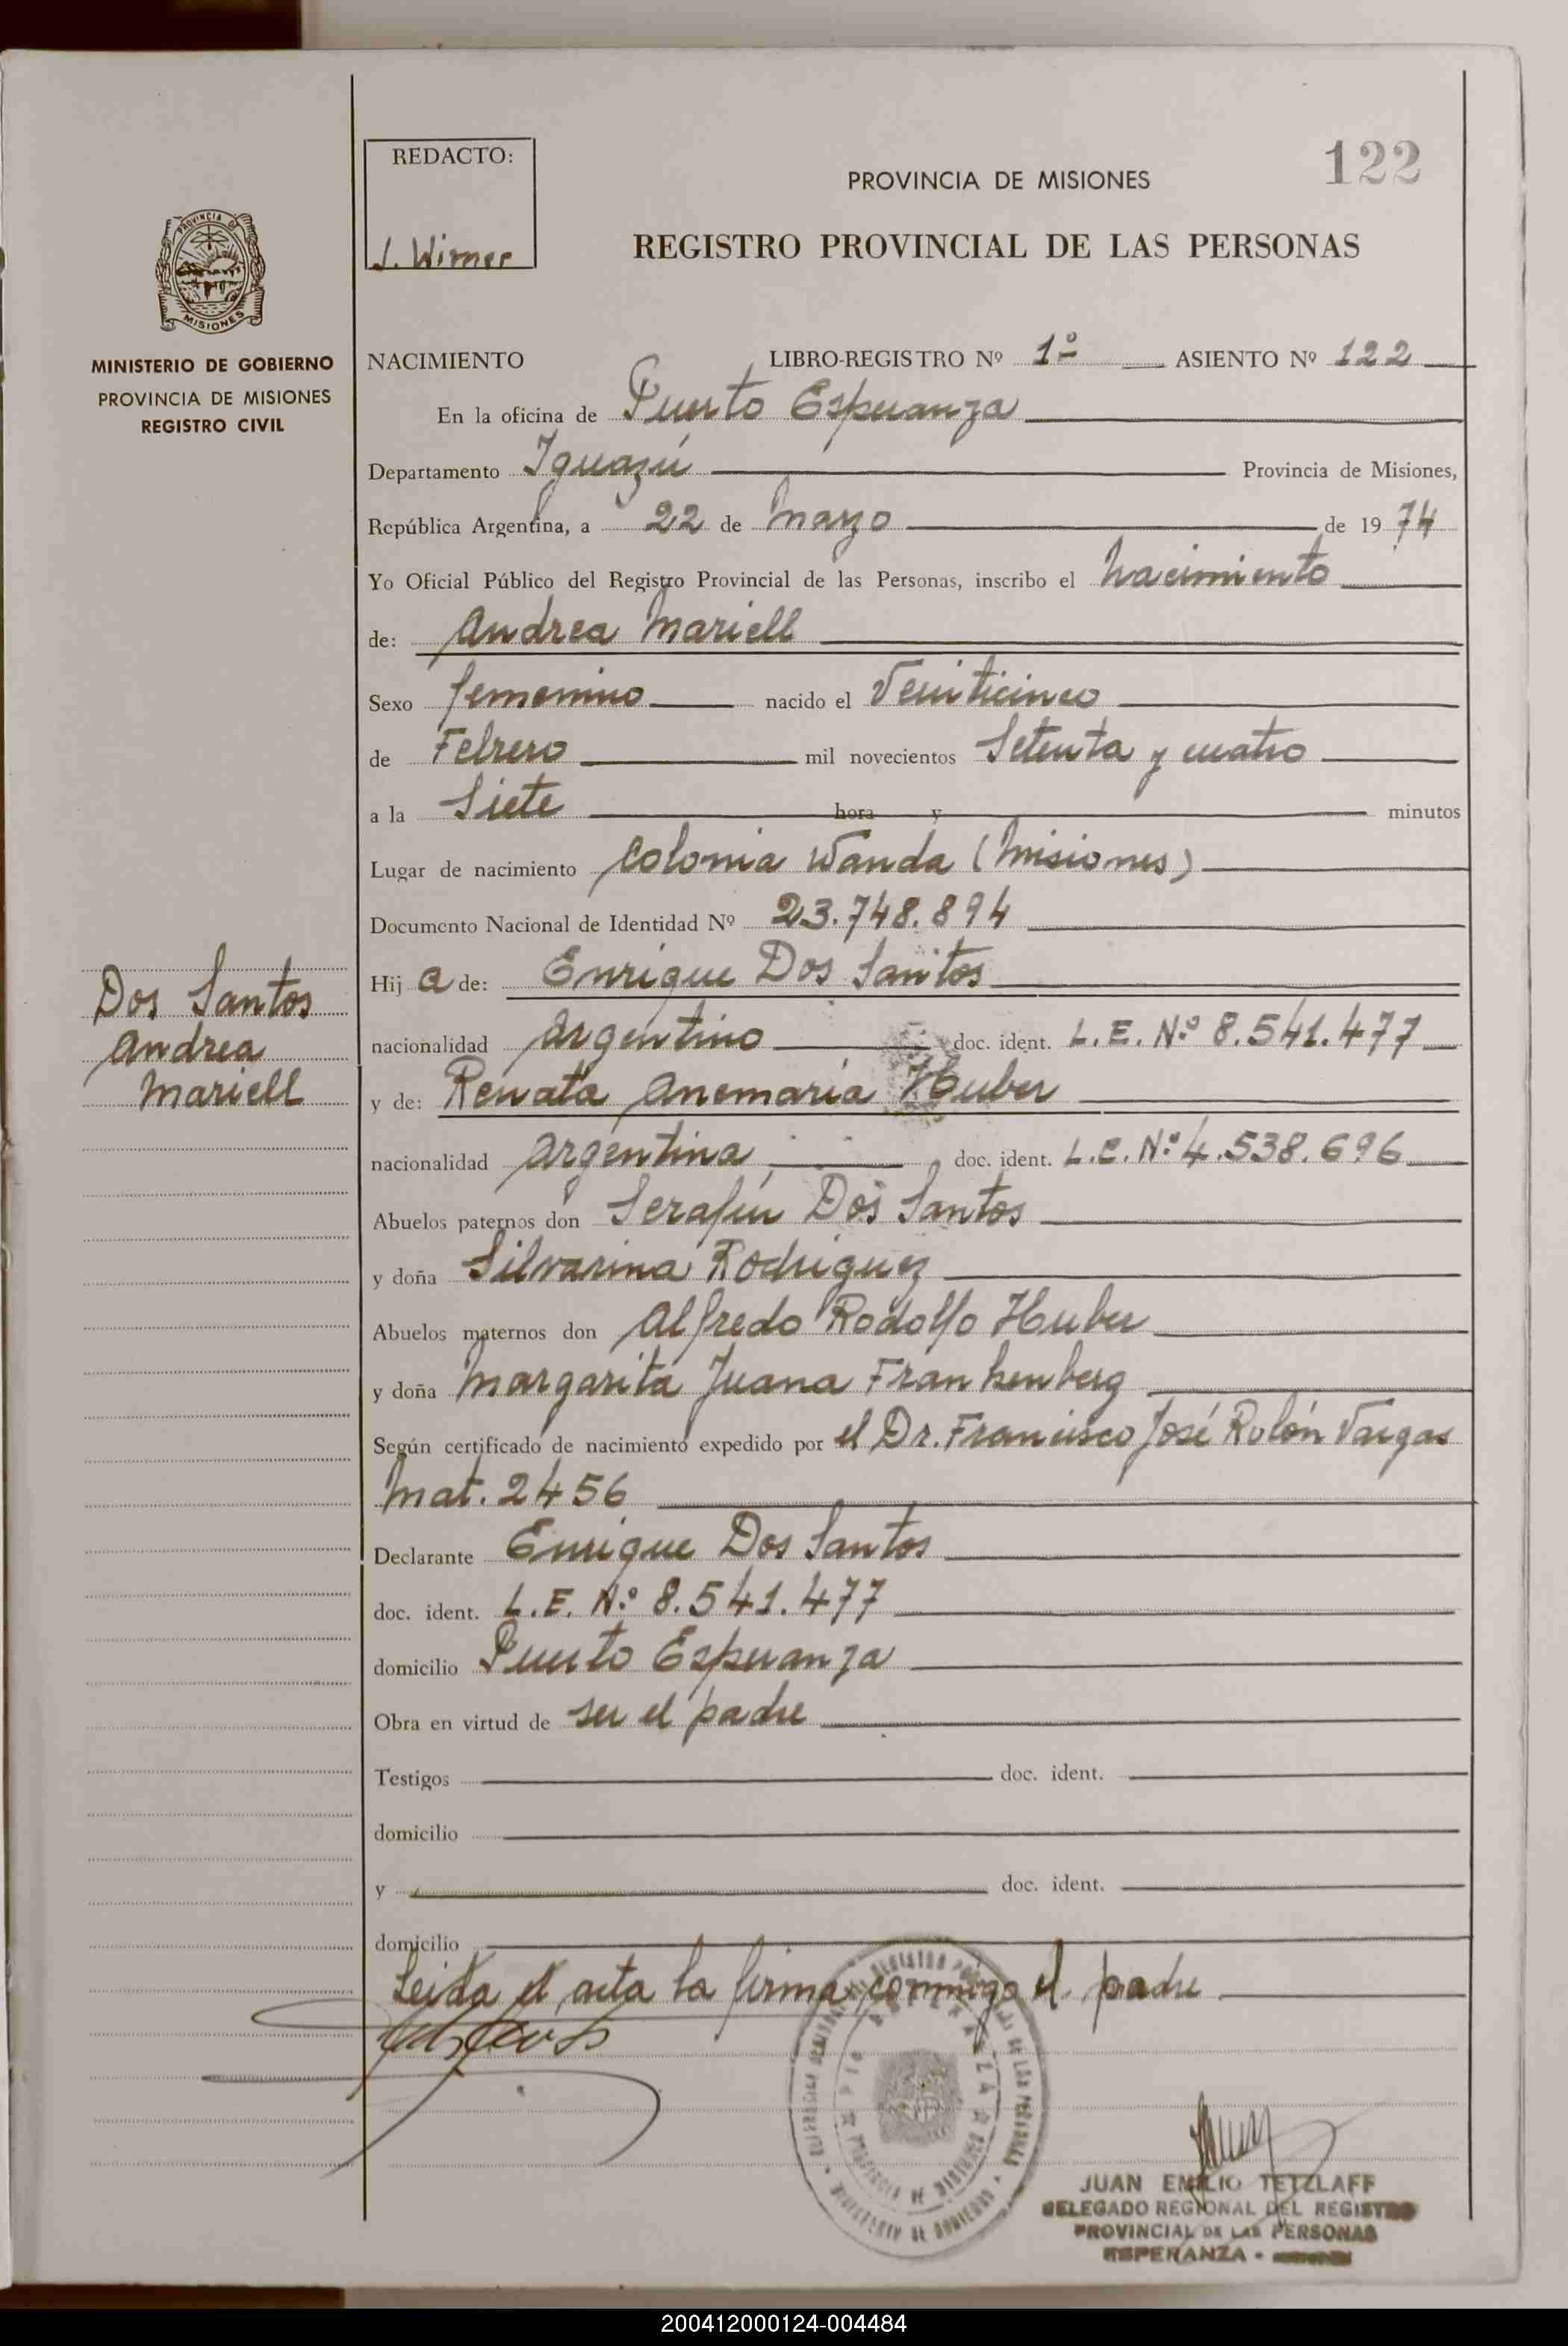 REDACTO:
J. Wirner
122
PROVINCIA DE MISIONES
REGISTRO PROVINCIAL DE LAS PERSONAS
PROVINCIA DE
MISIONES
MINISTERIO DE GOBIERNO
PROVINCIA DE MISIONES
REGISTRO CIVIL
NACIMIENTO LIBRO-REGISTRO Nº 1º ASIENTO Nº 122
En la oficina de Puerto Esperanza
Departamento Iguazú Provincia de Misiones,
República Argentina, a 22 de Marzo de 19 74
Yo Oficial Público del Registro Provincial de las Personas, inscribo el Nacimiento
de: Andrea Mariell
Sexo femenino nacido el Veinticinco
de Febrero mil novecientos Setenta y cuatro
a la Siete hora y minutos
Lugar de nacimiento Colonia Wanda (Misiones)
Documento Nacional de Identidad Nº 23.748.894
Hij a de: Enrique Dos Santos
nacionalidad argentino doc. ident. L.E. Nº 8.541.477
y de: Renata Anemaria Huber
nacionalidad argentina doc. ident. L.C. Nº 4.538.696
Abuelos paternos don Serafín Dos Santos
y doña Silvarina Rodriguez
Abuelos maternos don Alfredo Rodolfo Huber
y doña Margarita Juana Frankenberg
Según certificado de nacimiento expedido por el Dr. Francisco José Rolón Vargas
Mat. 2456
Declarante Enrique Dos Santos
doc. ident. L.E. Nº 8.541.477
domicilio Puerto Esperanza
Obra en virtud de ser el padre
Testigos doc. ident.
domicilio
y doc. ident.
domicilio
Leida el acta la firma conmigo el padre
Dos Santos
Andrea
Mariell
JUAN EMILIO TETZLAFF
DELEGADO REGIONAL DEL REGISTRO
PROVINCIAL DE LAS PERSONAS
ESPERANZA -
200412000124-004484